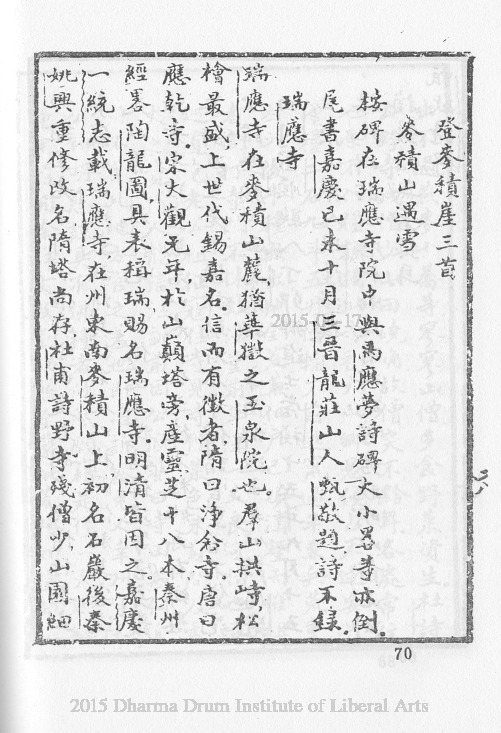 登麥積崖三首
麥積山遇雪
按碑在瑞應寺院中與馮應夢詩碑大小畧等亦倒
尾書嘉慶己未十月三晉龍莊山人甄敬題詩不錄
瑞應寺
瑞應寺在麥積山麓猶華嶽之玉泉院也羣山拱峙松
檜最盛上世代錫嘉名信而有徵者隋曰淨念寺唐曰
應乾寺宋大觀元年於山巔塔旁產靈芝十八本秦州
經畧陶龍圖具表稱瑞賜名瑞應寺明清皆因之嘉慶
一統志載瑞應寺在州東南麥積山上初名石巖後秦
姚興重修改名隋塔尚存杜甫詩野寺殘僧少山園細
70
2015 Dharma Drum Institute of Liberal Arts